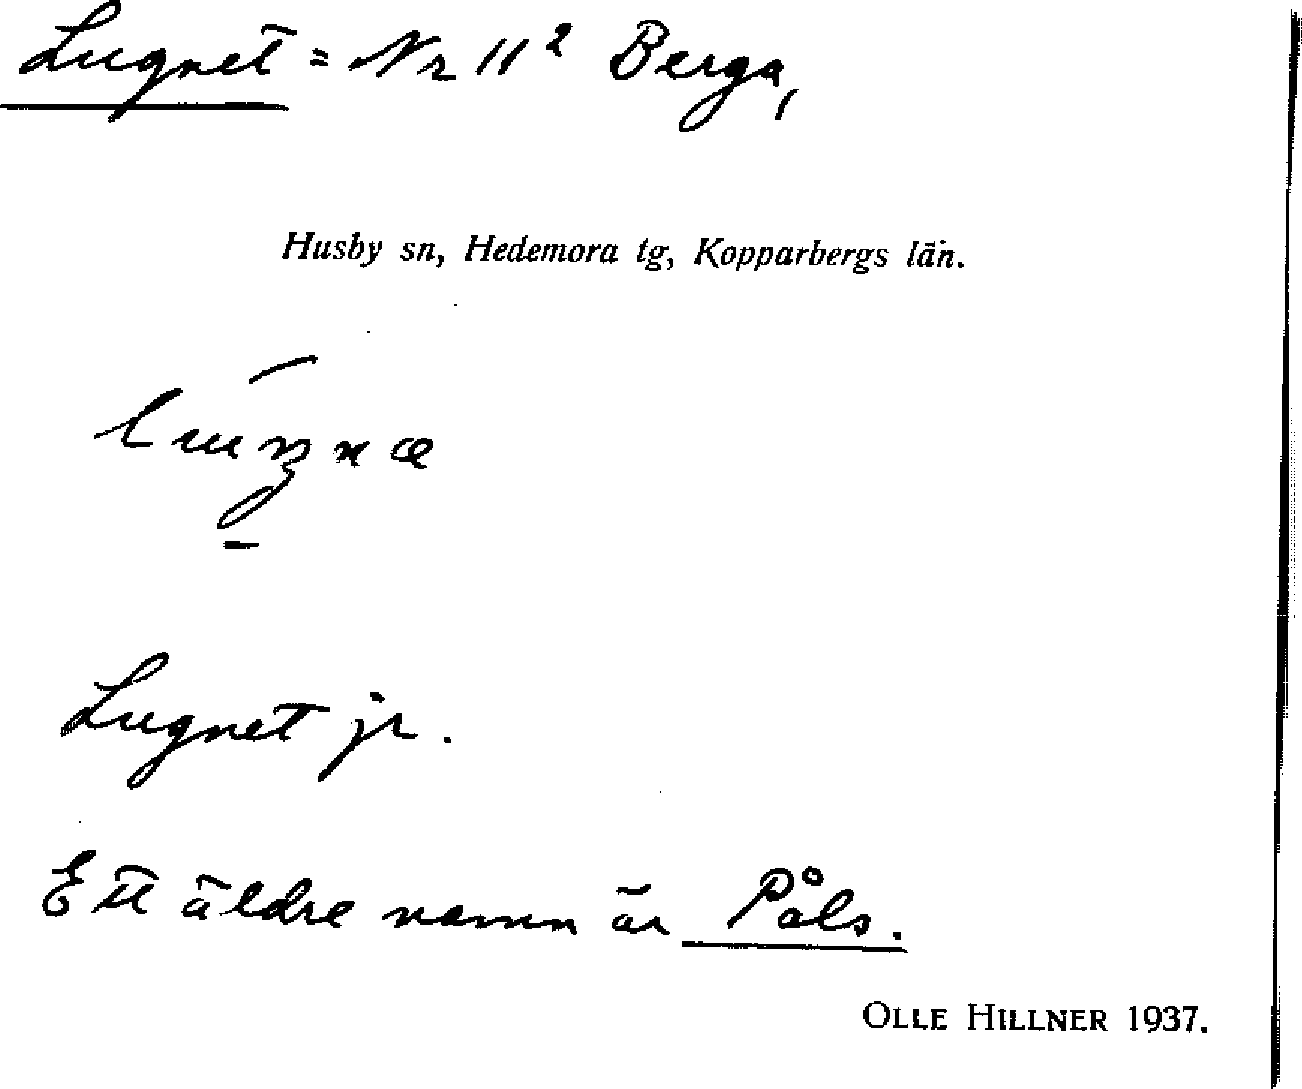 Lugnet = Nr 11² Berga,
Husby sn, Hedemora tg, Kopparbergs län.
Lugnet jr.
Ett äldre namn är Påls.
OLLE HILLNER 1937.